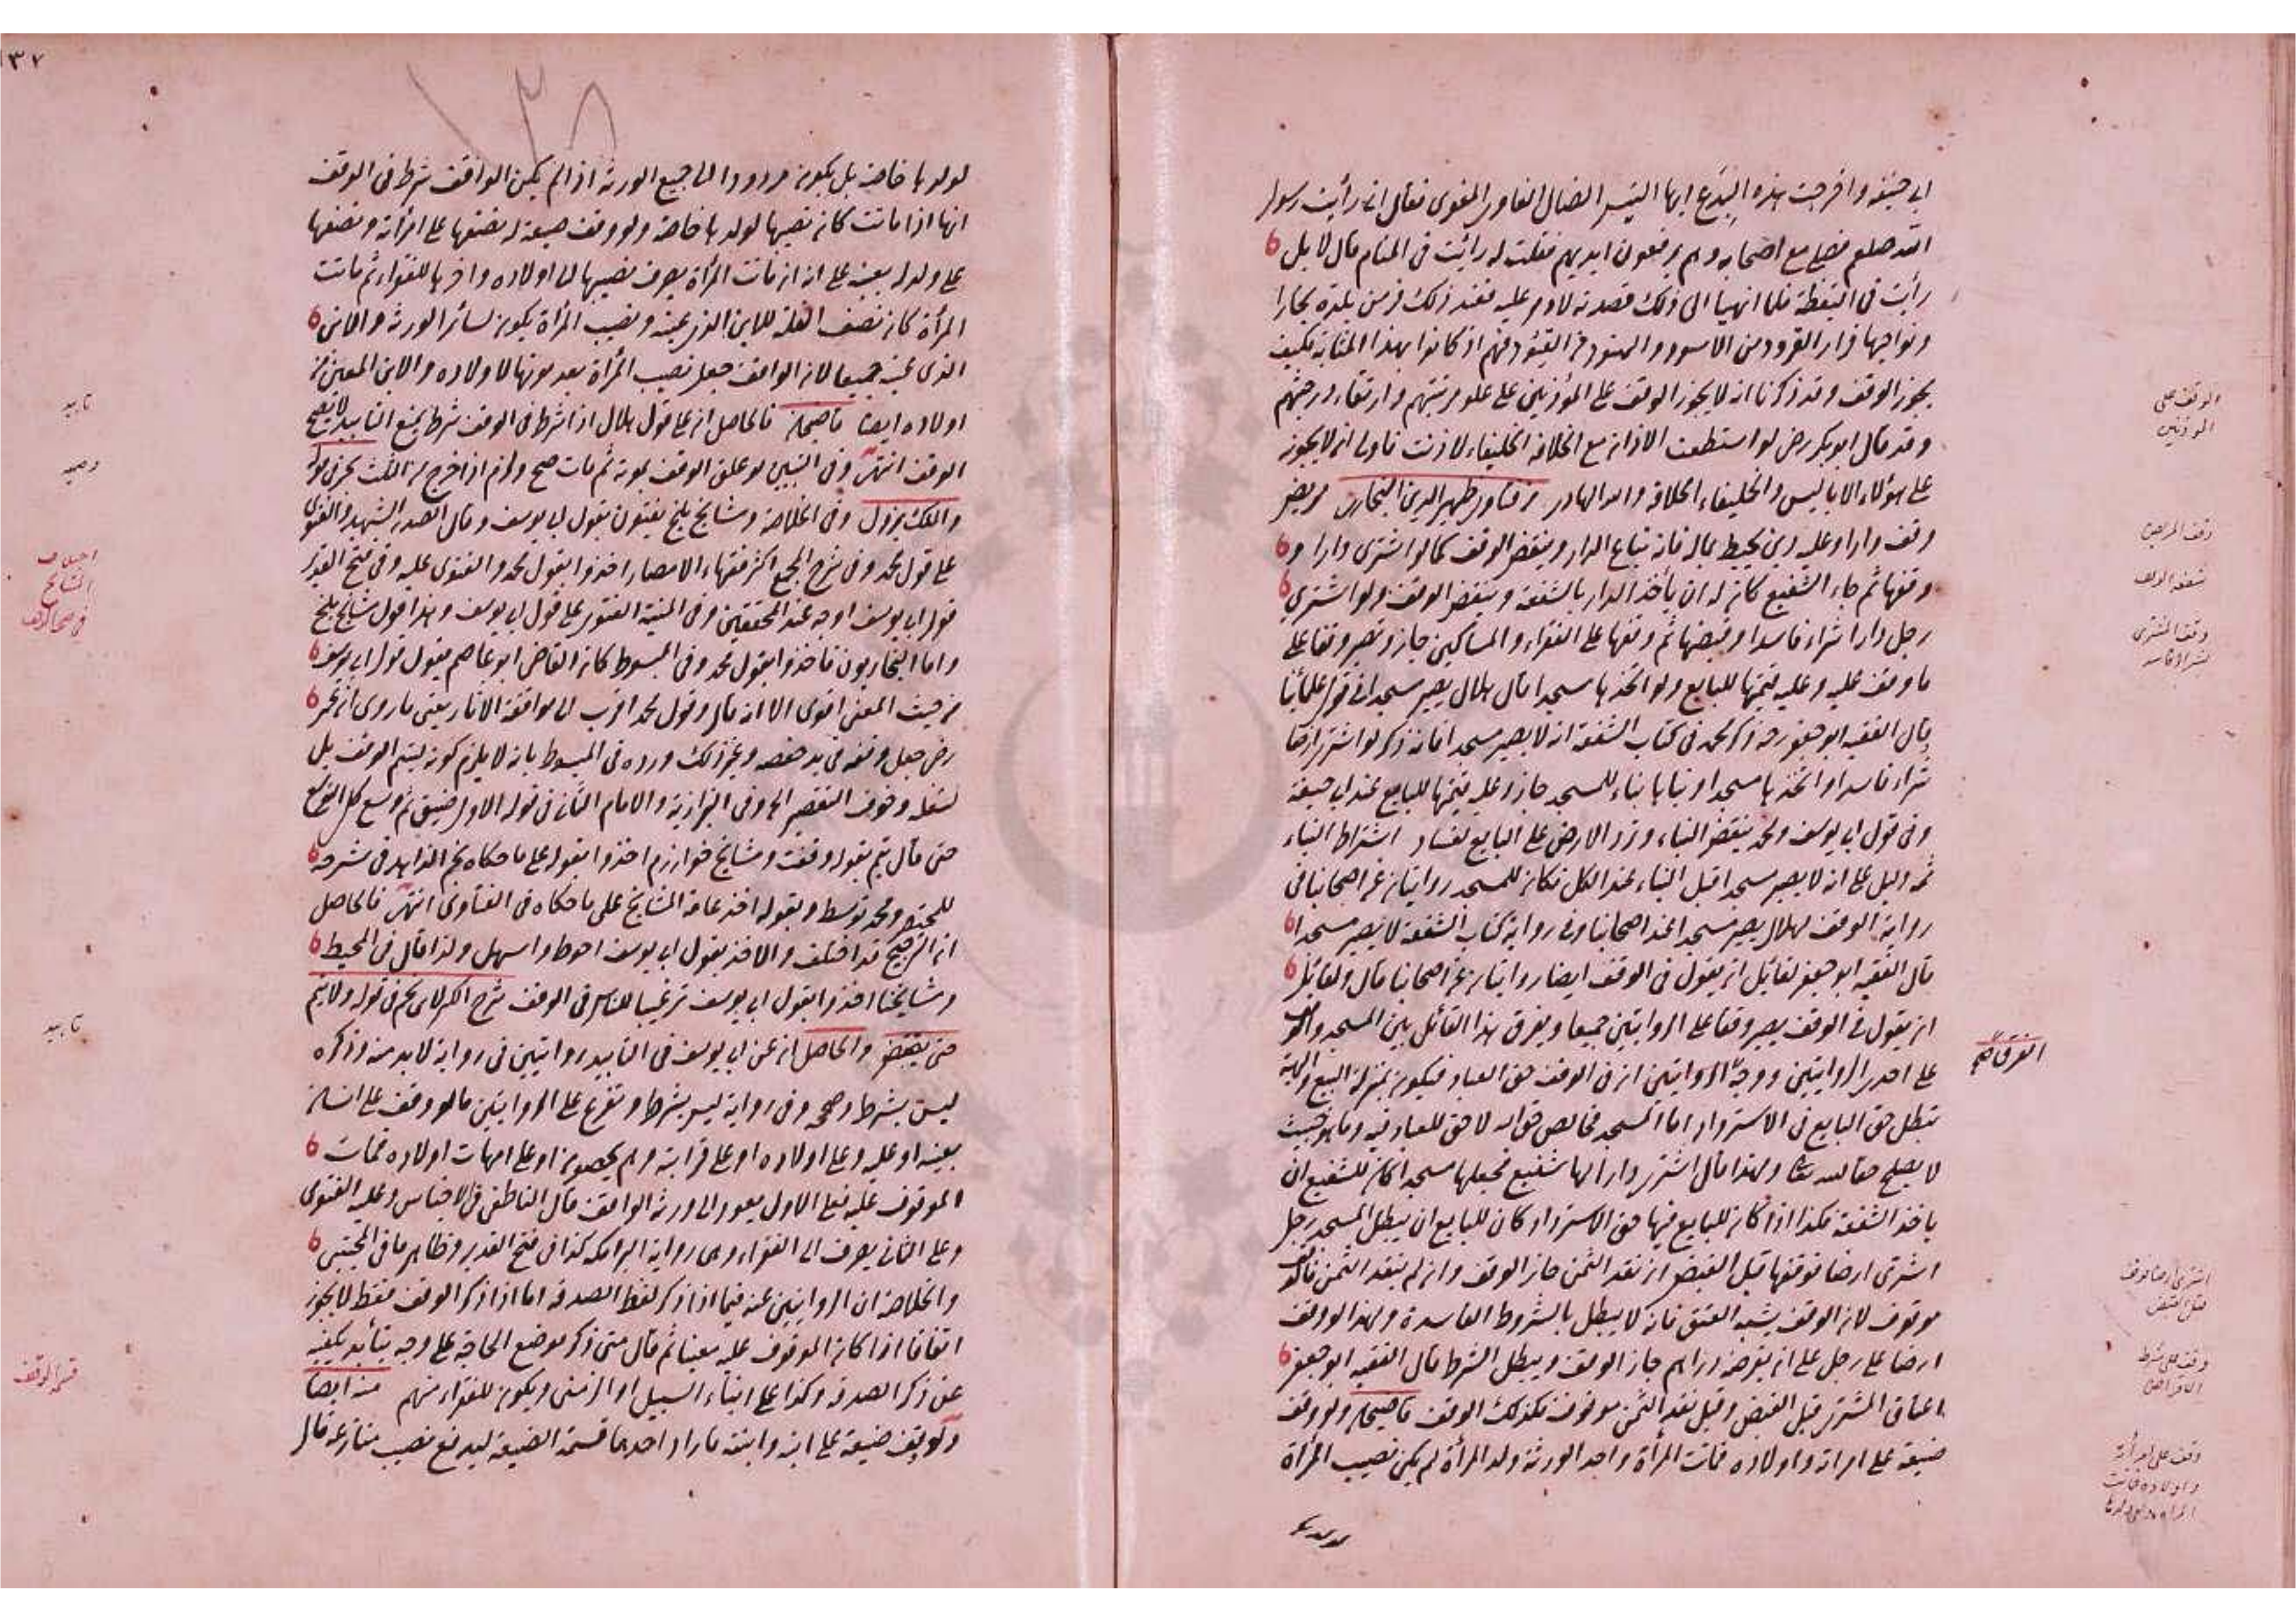 ابي حنيفة واخرجت هذه البدع ايها التيس الضال الغاوي المغوي فقال اني رأيت رسول
الله صلعم فصلى مع اصحابه وهم يرفعون ايديهم فقلت له رأيت في المنام قال لا بل
رأيت في اليقظة فلما انهينا الى ذلك قصدته لادمر عليه فعند ذلك فر من بلدة بخارا
ونواحيها فرار القرود من الاسود والهنود فهم اذ كانوا بهذا المثابة فكيف
يجوز الوقف وقد ذكرنا انه لا يجوز الوقف على المؤذنين على علو مرتبتهم وارتقاء درجتهم
وقد قال ابو بكر رض لو استطعت الاذان مع الخلافة الخليفاء لاذنت فاولى ان لا يجوز
على هؤلاء الاباليس والخليفاء الخلافة والله الهادي من فتاوى ظهير الدين البخاري مريض
وقف دارا وعليه دين يحيط بماله فانه تباع الدار وينقض الوقف كما لو اشترى دارا و
وقفها ثم جاء الشفيع كان له ان يأخذ الدار بالشفعة وينقض الوقف ولو اشترى
رجل دارا شراء فاسدا وقبضها ثم وقفها على الفقراء والمساكين جاز وتصير وقفا على
ما وقف عليه وعليه قيمتها للبايع ولو اتخذها مسجدا قال هلال يصير مسجدا في قول علمائنا
قال الفقيه ابو جعفر رحه ذكر محمد في كتاب الشفعة انه لا يصير مسجدا فانه ذكر لو اشترى ارضا
شراء فاسدا واتخذها مسجدا وبناها بناء للمسجد جاز وعليه قيمتها للبايع عند ابي حنيفة
وفي قول ابي يوسف ومحمد ينقض البناء وترد الارض على البايع لفساد اشتراط البناء
ثمه دليل على انه لا يصير مسجدا قبل البناء عند الكل فكان للمسجد روايتان عن اصحابنا في
رواية الوقف لهلال يصير مسجدا عند اصحابنا وفي رواية كتاب الشفعة لا يصير مسجدا
قال الفقيه ابو جعفر لقائل ان يقول في الوقف ايضا روايتان عن اصحابنا قال ولقائل
ان يقول في الوقف يصير وقفا على الروايتين جميعا ويفرق هذا القائل بين المسجد والوقف
على احدى الروايتين ووجه الروايتين ان في الوقف حق العباد فيكون بمنزلة البيع والهبة
تبطل حق البايع في الاسترداد اما المسجد فخالص حق الله لا حق للعباد فيه وما هو خبيث
لا يصلح حقا لله تعا ولهذا قال اشترى دارا لها شفيع فجعلها مسجدا كان للشفيع ان
ياخذ الشفعة فكذا اذا كان للبايع فيها حق الاسترداد كان للبايع ان يبطل المسجد رجل
اشترى ارضا فوقفها قبل القبض ان نقد الثمن جاز الوقف وان لم ينقد الثمن فالوقف
موقوف لان الوقف يشبه العتق فانه لا يبطل بالشروط الفاسدة ولهذا لو وقف
ارضا على رجل على ان يقرضه دراهم جاز الوقف ويبطل الشرط قال الفقيه ابو جعفر
اعتاق المشتري قبل القبض وقبل نقد الثمن موقوف فكذلك الوقف قاضيخان ولو وقف
ضيعة على امراته واولاده فماتت المرأة واحد الورثة ولد المرأة لم يكن نصيب المرأة
الوقف على
المؤذنين
وقف المريض
شفعة الوقف
وقف المشتري
شراء فاسد
الفرق
اشترى ارضا فوقف
قبل القبض
وقف على شرط
الاقراض
وقف على امرأته
واولاده فماتت
١٣٧
١٣٨
لولدها خاصة بل يكون مردودا الى جميع الورثة اذا لم يكن الواقف شرط في الوقف
انها اذا ماتت كان نصيبها لولدها خاصة ولو وقف ضيعة له نصفها على امرأته ونصفها
على ولد له بعينه على انه ان ماتت المرأة يصرف نصيبها الى اولاده واخرها للفقراء ثم ماتت
المرأة كان نصف الغلة للابن الذي عينه ونصيب المرأة يكون لسائر الورثة والابن
الذي عينه جميعا لان الواقف جعل نصيب المرأة بعد موتها لاولاده والابن المعين من
اولاده ايضا قاضيخان فالحاصل ان على قول هلال اذا شرط في الوقف شرط يمنع التابيد لا يصح
الوقف انتهى وفي التبيين لو علق الوقف بموته ثم مات صح ولزم اذا خرج من الثلث بحر في قوله
والملك يزول وفي الخلاصة ومشايخ بلخ يفتون بقول ابي يوسف وقال الصدر الشهيد والفتوى
على قول محمد وفي شرح المجمع اكثر فقهاء الامصار اخذوا بقول محمد والفتوى عليه وفي فتح القدير
قول ابي يوسف اوجه عند المحققين وفي المنية الفتوى على قول ابي يوسف وهذا قول مشايخ بلخ
واما البخاريون فاخذوا بقول محمد وفي المبسوط كان القاضي ابو عاصم يقول قول ابي يوسف
من حيث المعنى اقوى الا انه قال وقول محمد اقرب الى موافقة الاثار يعني ما روى ان عمر
رض جعل وقفه في يد حفصه وغير ذلك ورده في المبسوط بانه لا يلزم كونه ليتم الوقف بل
لشغله وخوف التقصير الخ وفي البزازية والامام الثاني في قوله الاول ضيق ثم وسع كل التوسع
حتى قال يتم بقوله وقفت ومشايخ خوارزم اخذوا بقوله على ما حكاه نجم الزاهد في شرحه
للمختصر ومحمد توسط وبقوله اخذ عامة المشايخ على ما حكاه في الفتاوى انتهى فالحاصل
ان الترجيح قد اختلف والاخذ بقول ابي يوسف احوط واسهل ولذا قال في المحيط
ومشايخنا اخذوا بقول ابي يوسف ترغيبا للناس في الوقف بحر في قوله ولا يتم
حتى يقبض والحاصل ان عن ابي يوسف في التابيد روايتين في رواية لابد منه وذكره
ليس بشرط وصححه وفي رواية ليس بشرط وتفرع على الروايتين ما لو وقف على انسان
بعينه او عليه وعلى اولاده او على قرابته وهم يحصون او على امهات اولاده فمات
الموقوف عليه فعلى الاول يعود الى ورثة الواقف قال الناطفي في الاجناس وعليه الفتوى
وعلى الثاني يصرف الى الفقراء وهي رواية البرامكة كذا في فتح القدير وظاهر ما في المجتبى
والخلاصة ان الروايتين عنه فيما اذا ذكر لفظ الصدقة اما اذا ذكر الوقف فقط لا يجوز
اتفاقا اذا كان الموقوف عليه معينا ثم قال متى ذكر موضع الحاجة على وجه يتأبد يكفيه
عن ذكر الصدقة وكذا على ابناء السبيل او الزمنى ويكون للفقراء منهم منه ايضا
ولو وقف ضيعة على ابنه وابنته فاراد احدهما قسمة الضيعة ليدفع نصيب مزارعة قال
تابيد
وصيه
اختلاف
المشايخ
تابيد
قسمة الوقف